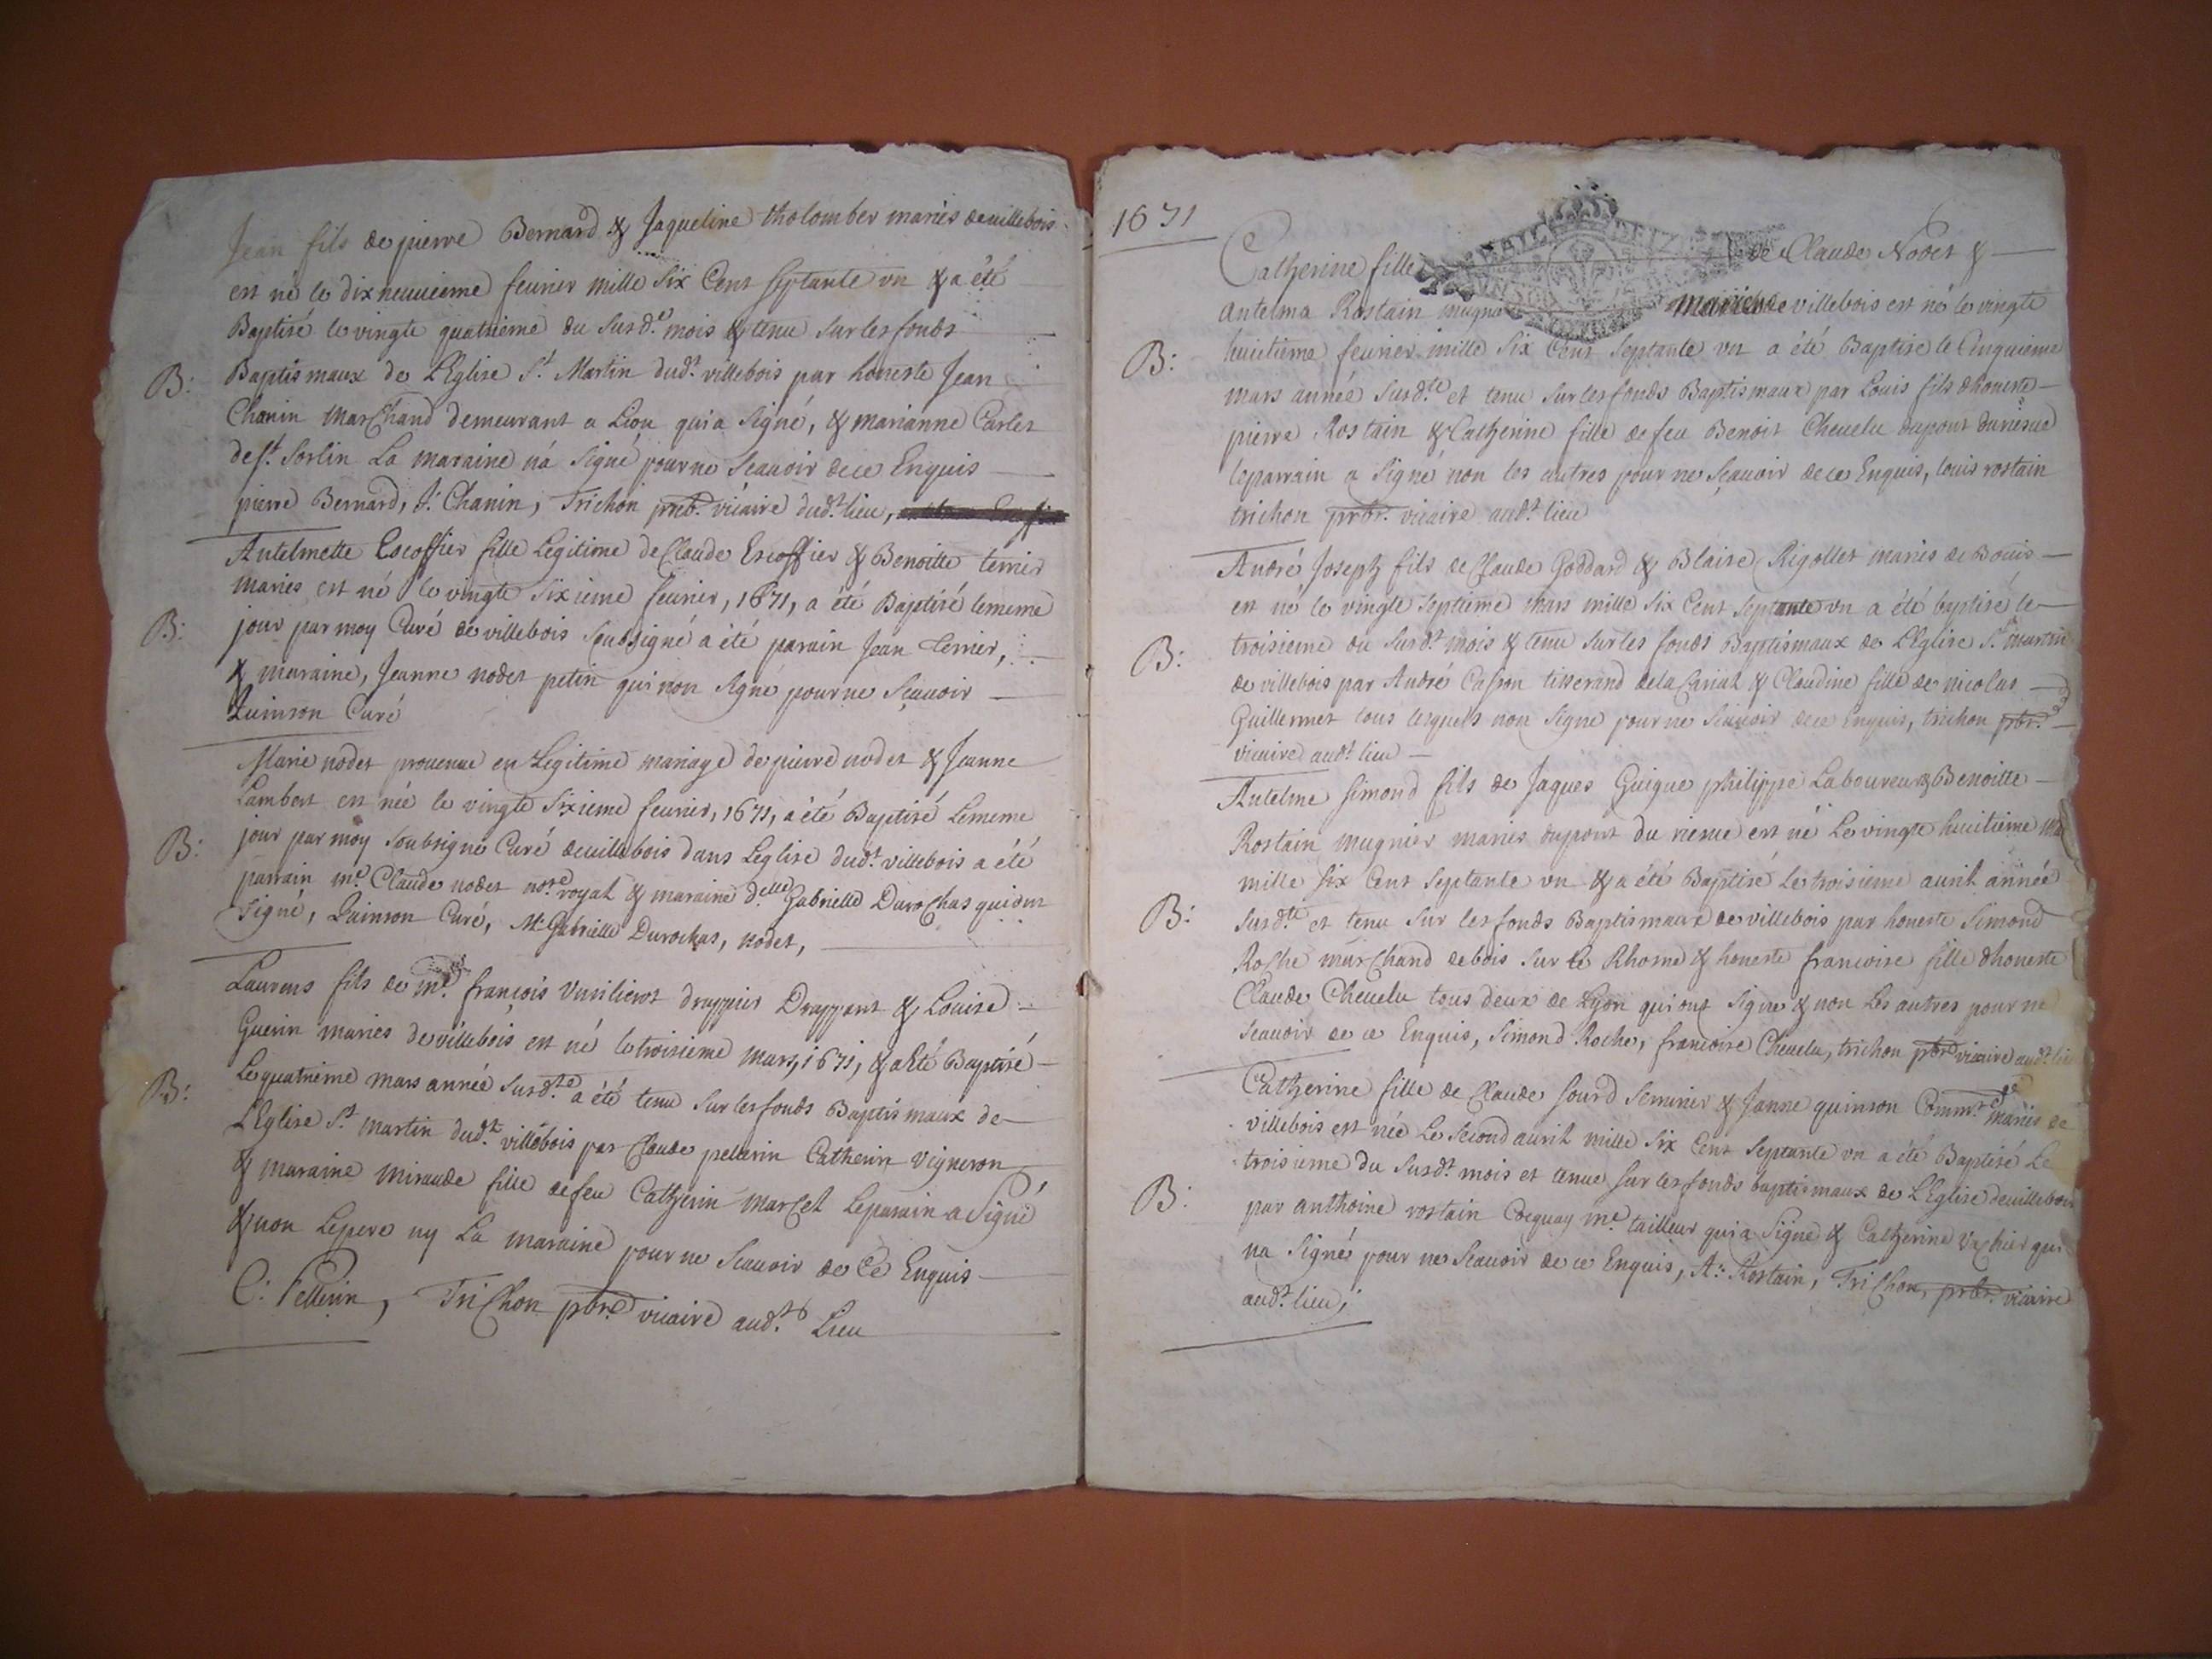 Jean fils de pierre Bernard & Jaqueline tholomber mariés de uillebois
est né le dix neuuieme feurier mille six Cent septante vn & a été
Baptisé le vingte quatrième du susd.t mois & tenu sur les fonds
B: Baptismaux de L'Eglise S.t Martin dud.t villebois par honeste Jean
Chanin marchand demeurant a Lion qui a signé, & marianne Carlet
de s.t Sorlin La maraine nà signé pour ne scauoir de ce Enquis
pierre Bernard, J. Chanin, Trichon preb.r vicaire dud.t lieu,
Antelmette Escoffier fille Legitime de Claude Escoffier & Benoitte terrier
maries est né le vingte sixieme feurier, 1671, a été Baptisé le meme
B: jour par moy Curé de villebois soubsigné a été parain Jean terrier,
& maraine, Jeanne nodet petin qui non signé pour ne sçauoir
Quinson Curé
Marie nodet prouenue en Legitime mariage de pierre nodet & Jeanne
Lambert est née le vingte sixieme feurier, 1671, a été Baptisé Le meme
B: jour par moy soubsigné Curé de uillebois dans Leglise dud.t villebois a été
parrain m.e Claude nodet not.e royal & maraine d.elle Gabrielle Durochas qui ont
signé, Quinson Curé, M. Gabrielle Durochas, nodet,
Laurens fils de m.e françois drappier Drappant & Louise
Guerin mariés de villebois est né le troisieme mars, 1671, & a Eté Baptisé
B: Le quatrième mars année susd.te a été tenu sur les fonds Baptismaux de
L'Eglise S.t martin dud.t villebois par Claude pellerin Catherin vigneron
& maraine miraude fille de feu Catherin marcel Le parain a signé
& non Le pere ny La maraine pour ne scauoir de Ce Enquis
C: Pellerin, Trichon pbre vicaire aud.t Lieu
1671
Catherine fille de Claude Nodet &
Antelma Rostain mugnier mariés de villebois est né le vingte
B: huitième feurier mille six Cent septante vn a été Baptisé le Cinquieme
mars année susd.te et tenu sur les fonds Baptismaux par Louis fils dhoneste
pierre Rostain & Catherine fille de feu Benoit Cheuelu dupont
le parrain a signé non les autres pour ne sçauoir de ce Enquis, louis rostain
trichon prbr. vicaire aud.t lieu
André Joseph fils de Claude Goddard & Blaise Rigollet mariés de Bouis
est né le vingte septieme mars mille six Cent septante vn a été baptisé le
B: troisieme du susd.t mois & tenu sur les fonds Baptismaux de L'Eglise S.t martin
de villebois par André Casson tisserand & Claudine fille de nicolas
Guillermet tous lesquels non signe pour ne scauoir de ce enquis, trichon prbr.
vicaire aud.t lieu
Antelme simond fils de Jaques Guigue philippe Laboureur & Benoitte
Rostain mugnier mariés dupont est né Le vingte huitieme
mille six Cent septante vn & a été Baptisé Le troisieme auril année
B: susd.te et tenu sur les fonds Baptismaux de villebois par honeste simond
Roche marchand de bois sur le Rhosne & honeste francoise fille dhoneste
Claude Cheuelu tous deux de Lyon qui ont signe & non Les autres pour ne
scauoir de ce Enquis, simond Roche, francoise Cheuelu, trichon pbre vicaire aud.t lieu
Catherine fille de Claude sourd & Janne quinson mariés de
villebois est née Le second auril mille six Cent septante vn a été Baptisé Le
troisieme du susd.t mois et tenue sur les fonds baptismaux de L'Eglise de uillebois
B: par anthoine rostain m.e tailleur qui a signé & Catherine Vachier qui
na signée pour ne scauoir de ce Enquis, A: Rostain, Trichon, prbr. vicaire
aud.t lieu;